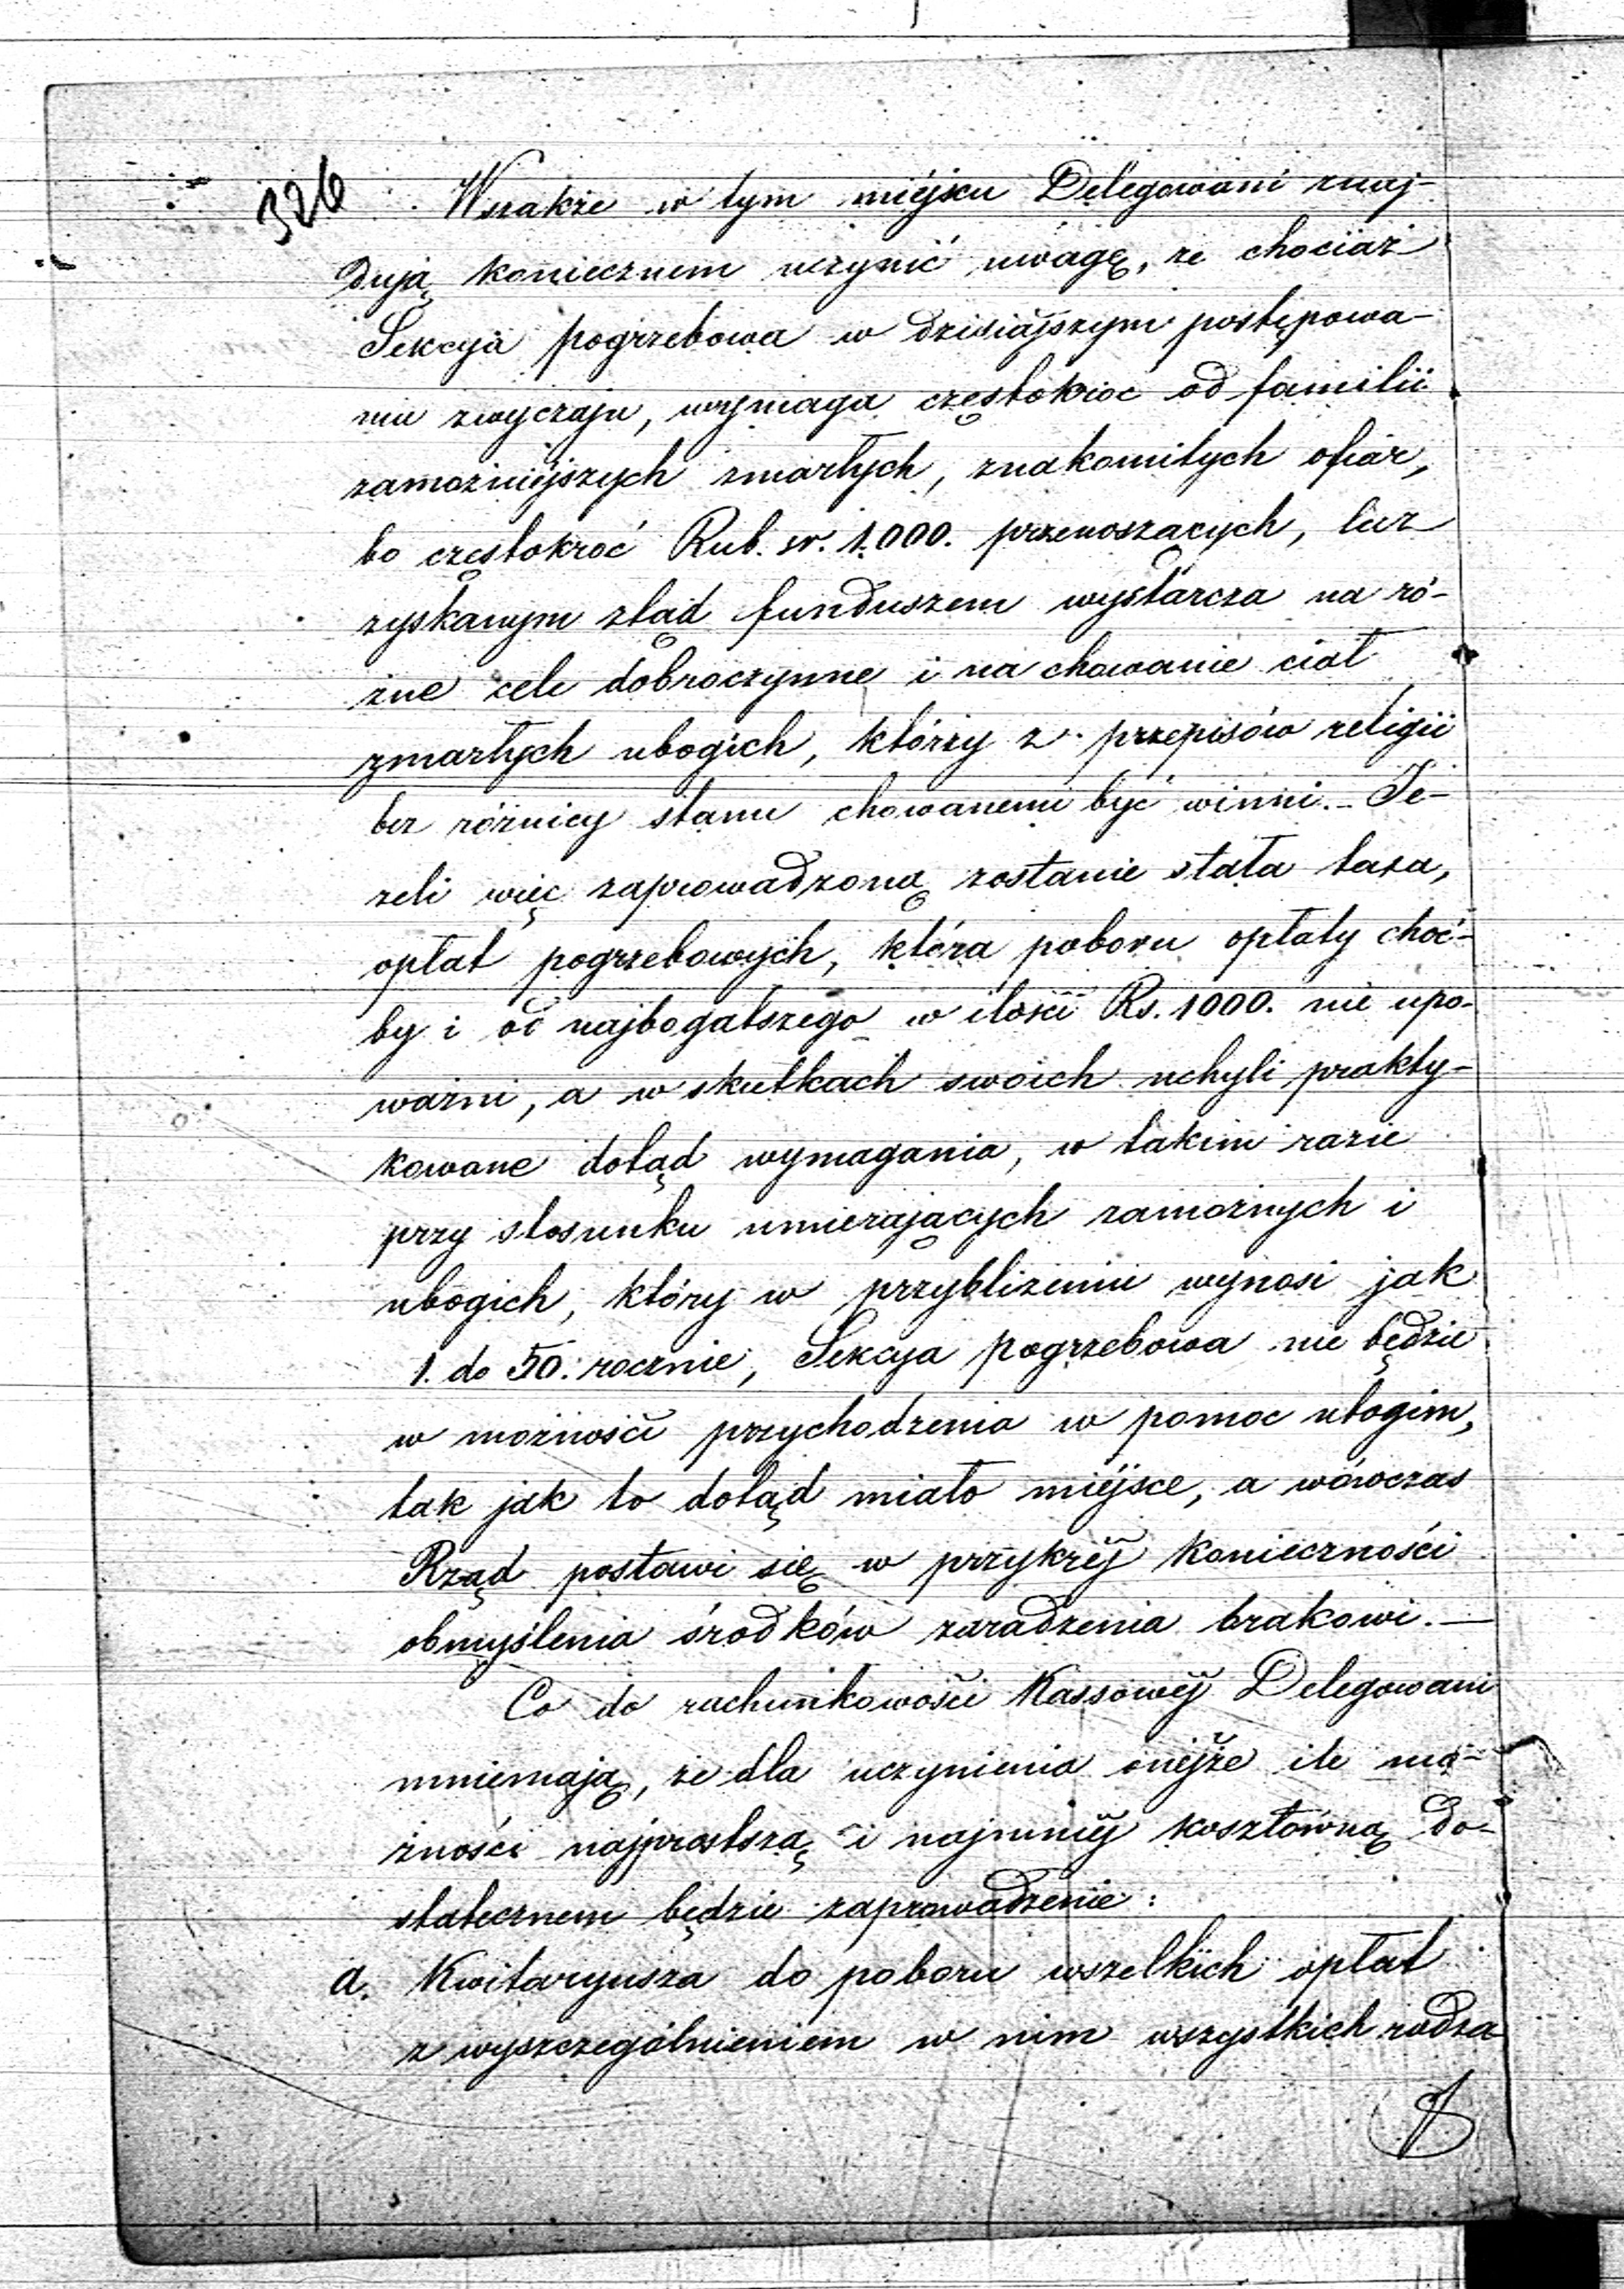 326
Wszakże w tym miejscu Delegowani znaj-
dują koniecznem uczynić uwagę, że chociaż
Sekcya pogrzebowa w dzisiajszym postępowa-
niu zwyczaju, wymaga częstokroć od familii
zamożniejszych zmarłych, znakomitych ofiar,
bo częstokroć Rub. sr. 1.000. przenoszących, lecz
zyskanym ztąd funduszem wystarcza na ró-
żne cele dobroczynne i na chowanie ciał
zmarłych ubogich, którzy z przepisów religii
bez różnicy stanu chowanemi być winni. – Je-
żeli więc zaprowadzoną zostanie stała taxa,
opłat pogrzebowych, która poboru opłaty choć-
by i od najbogatszego w ilości Rs. 1000. nie upo-
ważni, a w skutkach swoich uchyli prakty-
kowane dotąd wymagania, w takim razie
przy stosunku umierających zamożnych i
ubogich, który w przybliżeniu wynosi jak
1. do 50. rocznie, Sekcya pogrzebowa nie będzie
w możności przychodzenia w pomoc ubogim,
tak jak to dotąd miało miéjsce, a wówczas
Rząd postawi się w przykréj konieczności
obmyślenia środków zaradzenia brakowi. —
Co do rachunkowości Kassowéj Delegowani
mniemają, że dla uczynienia onéjże ile mo-
żności najprostszą i najmniéj kosztówną do-
statecznem będzie zaprowadzenie:
a. Kwitaryusza do poboru wszelkich opłat
z wyszczególnieniem w nim wszystkich rodza